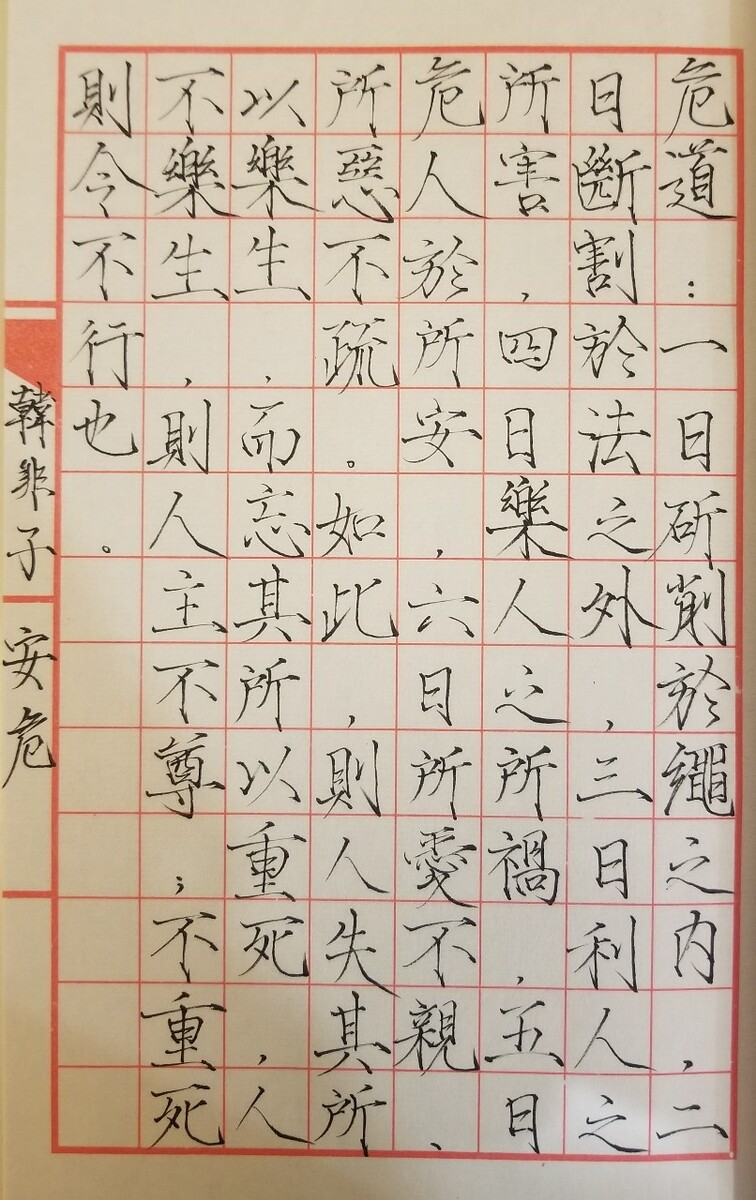 危道：一曰斫削於繩之內，二
曰斷割於法之外，三曰利人之
所害，四曰樂人之所禍，五曰
危人於所安，六曰所愛不親、
所惡不疏。如此，則人失其所
以樂生，而忘其所以重死，人
不樂生，則人主不尊；不重死
則令不行也。
韓非子
安危